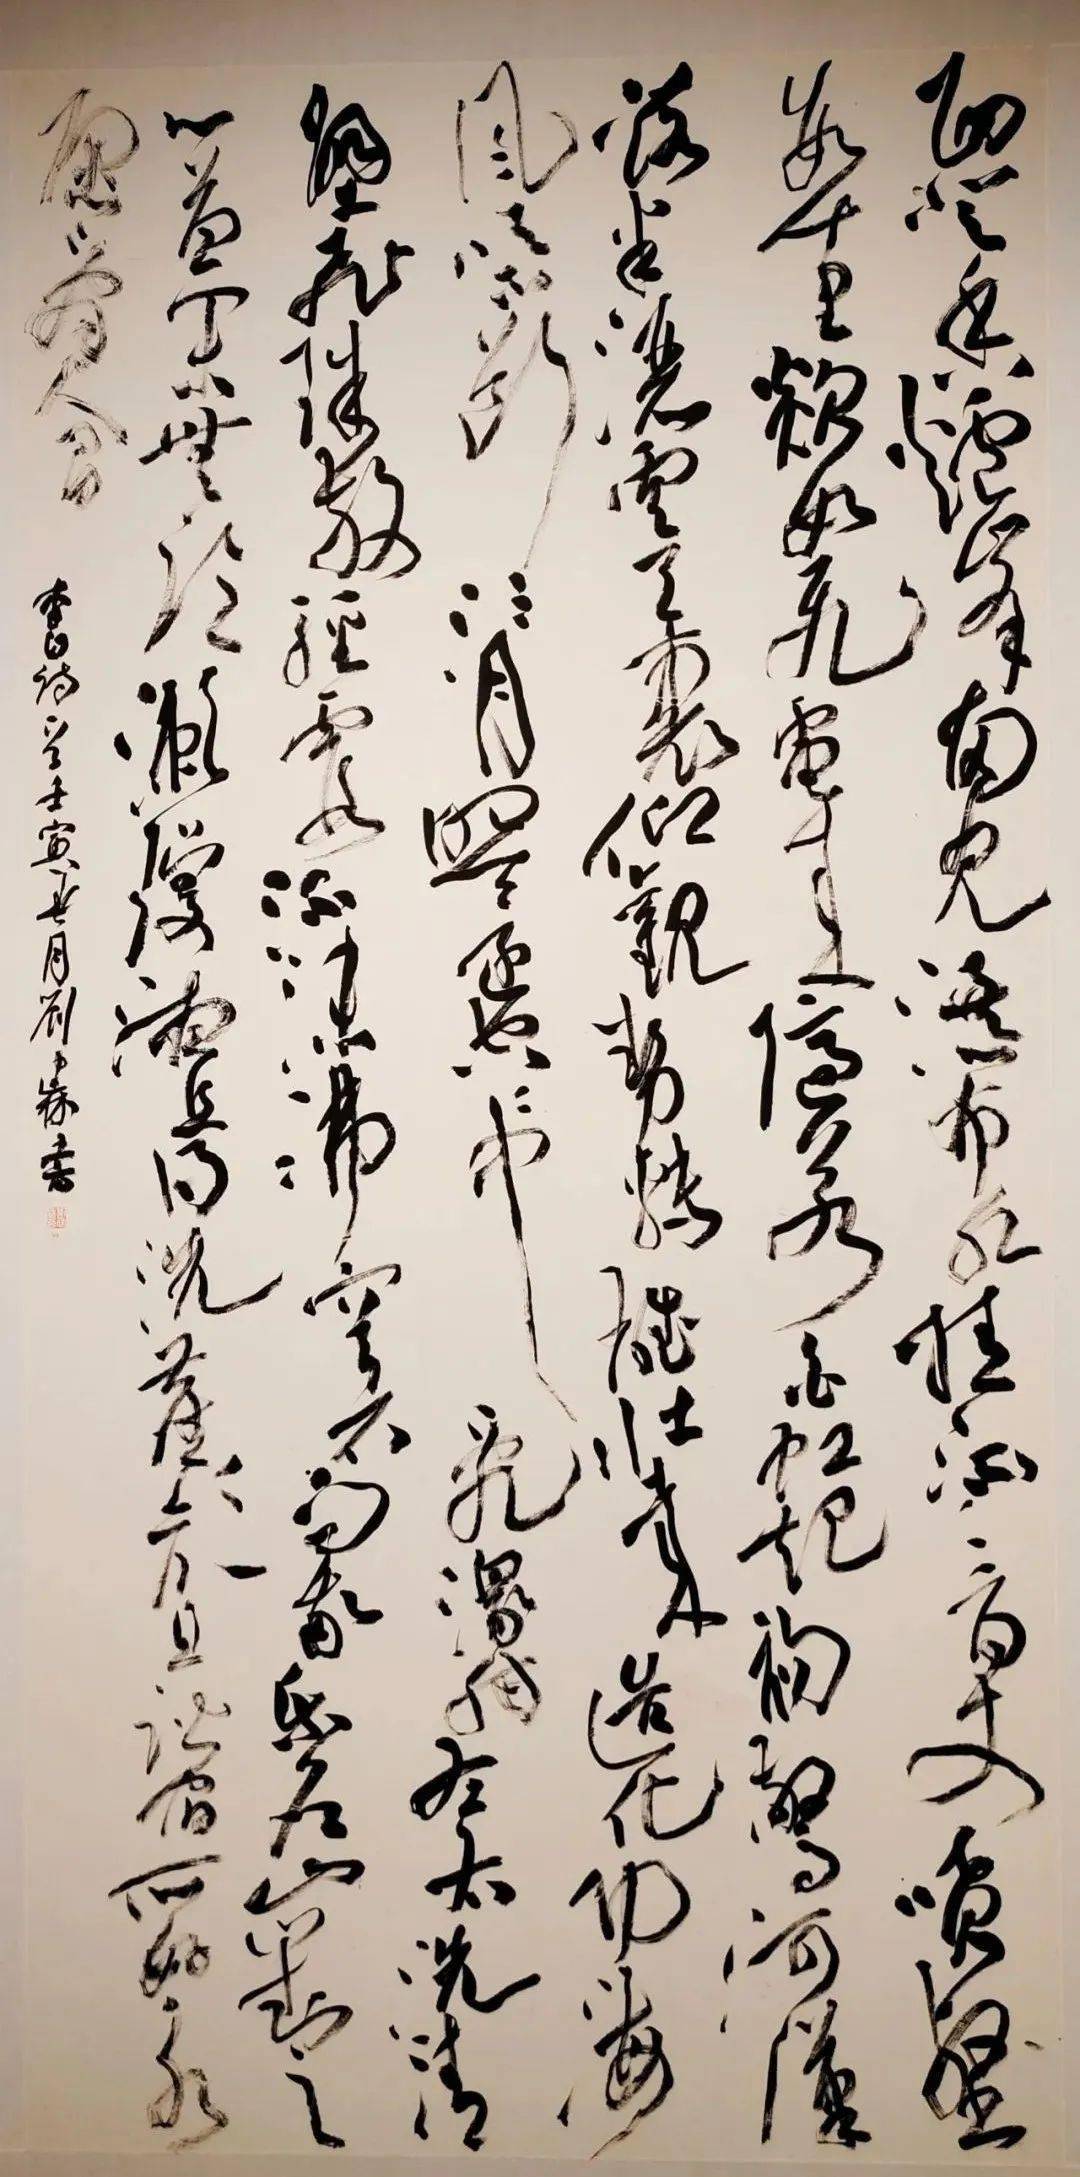 西登香爐峰南見瀑布水挂流三百丈噴壑
數十里欻如飛電来隱若白虹起初驚河漢
落半灑雲天裏仰觀勢轉雄壯哉造化功海
風吹不斷江月照還空中亂潀射左右洗清
壁飛珠散輕霞流沫沸穹石而我樂名山對之
心益閑無論漱瓊液還得洗塵顏且諧宿所好永
願辭人間
李白詩壬寅月劉書